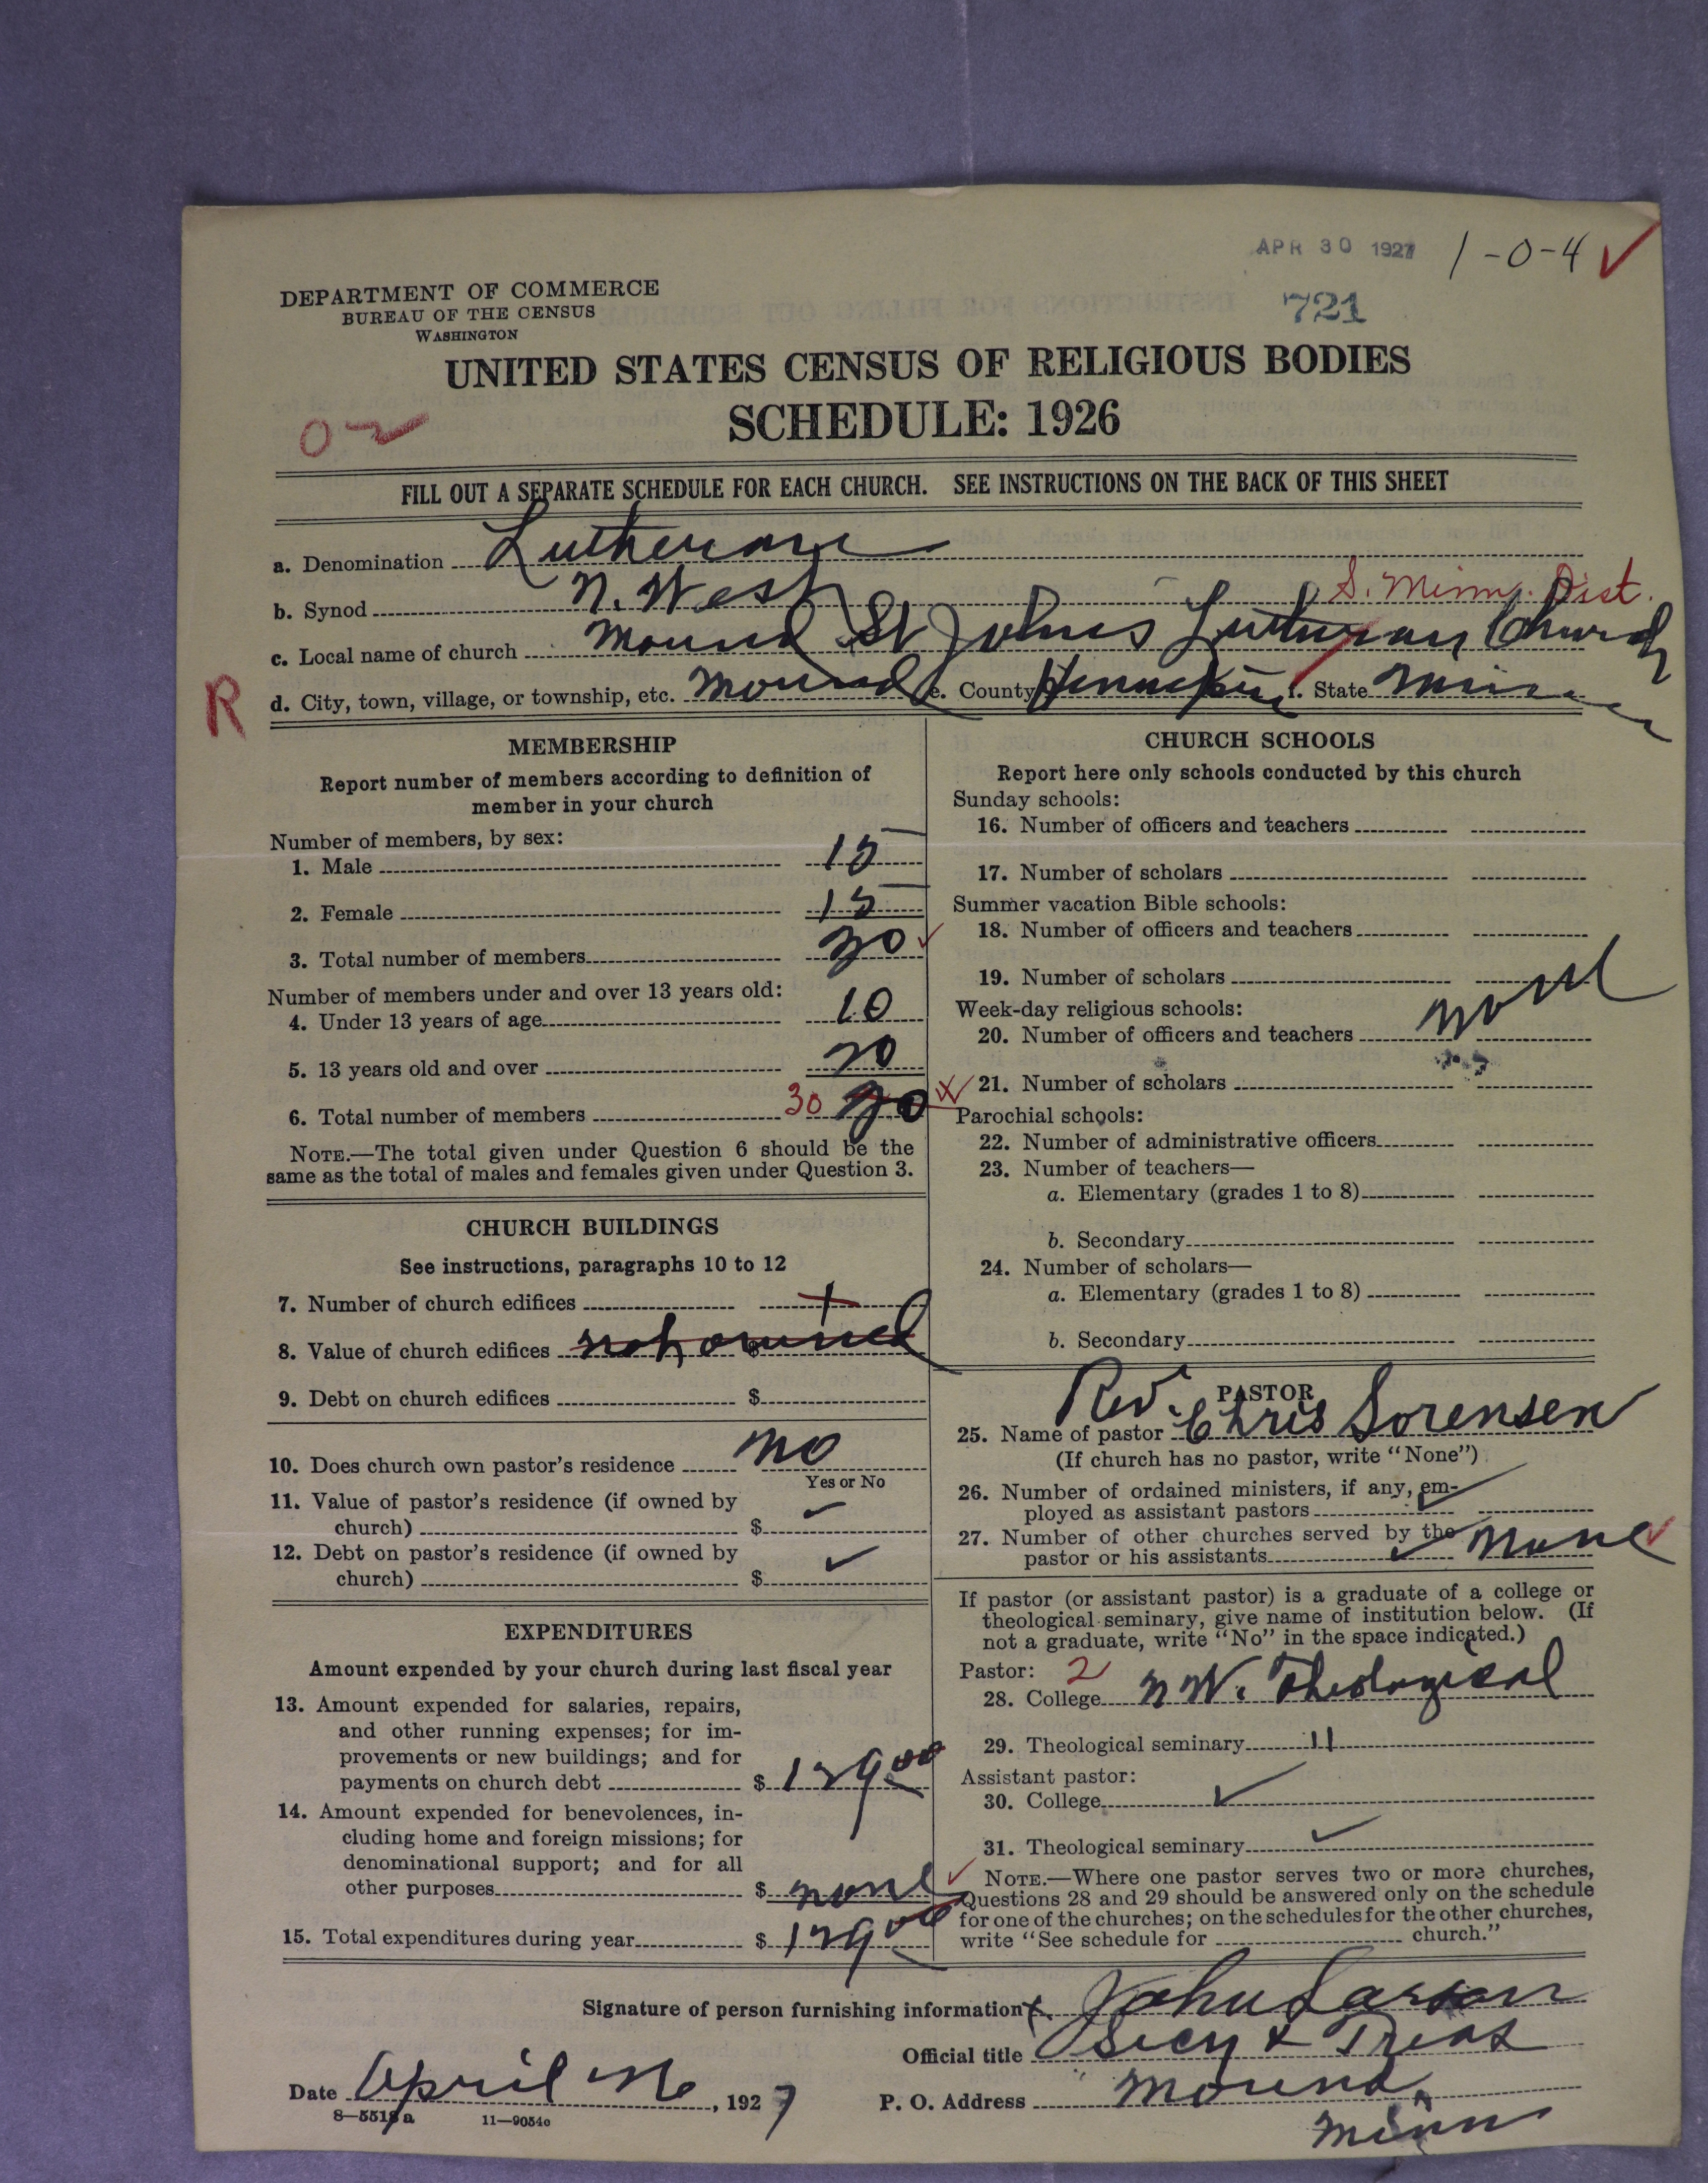 APR 30 1927 1-0-4 ✓
DEPARTMENT OF COMMERCE
BUREAU OF THE CENSUS
WASHINGTON
721
UNITED STATES CENSUS OF RELIGIOUS BODIES
SCHEDULE: 1926
FILL OUT A SEPARATE SCHEDULE FOR EACH CHURCH. SEE INSTRUCTIONS ON THE BACK OF THIS SHEET
a. Denomination Lutheran
b. Synod N. West S. Minn. Dist.
c. Local name of church Mound St Johns Lutheran Church
R
d. City, town, village, or township, etc. Mound e. County Hennepin f. State Minn
MEMBERSHIP
Report number of members according to definition of
member in your church
Number of members, by sex:
1. Male 15
2. Female 15
3. Total number of members 30 ✓
Number of members under and over 13 years old:
4. Under 13 years of age 10
5. 13 years old and over 20
6. Total number of members 30
NOTE.—The total given under Question 6 should be the
same as the total of males and females given under Question 3.
CHURCH BUILDINGS
See instructions, paragraphs 10 to 12
7. Number of church edifices
8. Value of church edifices not owned $
9. Debt on church edifices $
10. Does church own pastor's residence no
Yes or No
11. Value of pastor's residence (if owned by
church) $
12. Debt on pastor's residence (if owned by
church) $ ✓
EXPENDITURES
Amount expended by your church during last fiscal year
13. Amount expended for salaries, repairs,
and other running expenses; for im-
provements or new buildings; and for
payments on church debt $ 129.00
14. Amount expended for benevolences, in-
cluding home and foreign missions; for
denominational support; and for all
other purposes $ none ✓
15. Total expenditures during year $ 129.00
CHURCH SCHOOLS
Report here only schools conducted by this church
Sunday schools:
16. Number of officers and teachers
17. Number of scholars
Summer vacation Bible schools:
18. Number of officers and teachers
19. Number of scholars
Week-day religious schools:
20. Number of officers and teachers none
21. Number of scholars
Parochial schools:
22. Number of administrative officers
23. Number of teachers—
a. Elementary (grades 1 to 8)
b. Secondary
24. Number of scholars—
a. Elementary (grades 1 to 8)
b. Secondary
PASTOR
25. Name of pastor Rev. Chris Sorensen
(If church has no pastor, write "None")
26. Number of ordained ministers, if any, em-
ployed as assistant pastors ✓
27. Number of other churches served by the
pastor or his assistants ✓ none ✓
If pastor (or assistant pastor) is a graduate of a college or
theological seminary, give name of institution below. (If
not a graduate, write "No" in the space indicated.)
Pastor: 2
28. College N W. Theological
29. Theological seminary 11
Assistant pastor:
30. College ✓
31. Theological seminary ✓
NOTE.—Where one pastor serves two or more churches,
Questions 28 and 29 should be answered only on the schedule
for one of the churches; on the schedules for the other churches,
write "See schedule for church."
Signature of person furnishing information John Larson
Official title Secy & Treas
Date April 26, 1927 P. O. Address Mound,
Minn
8—5518a 11—9054c